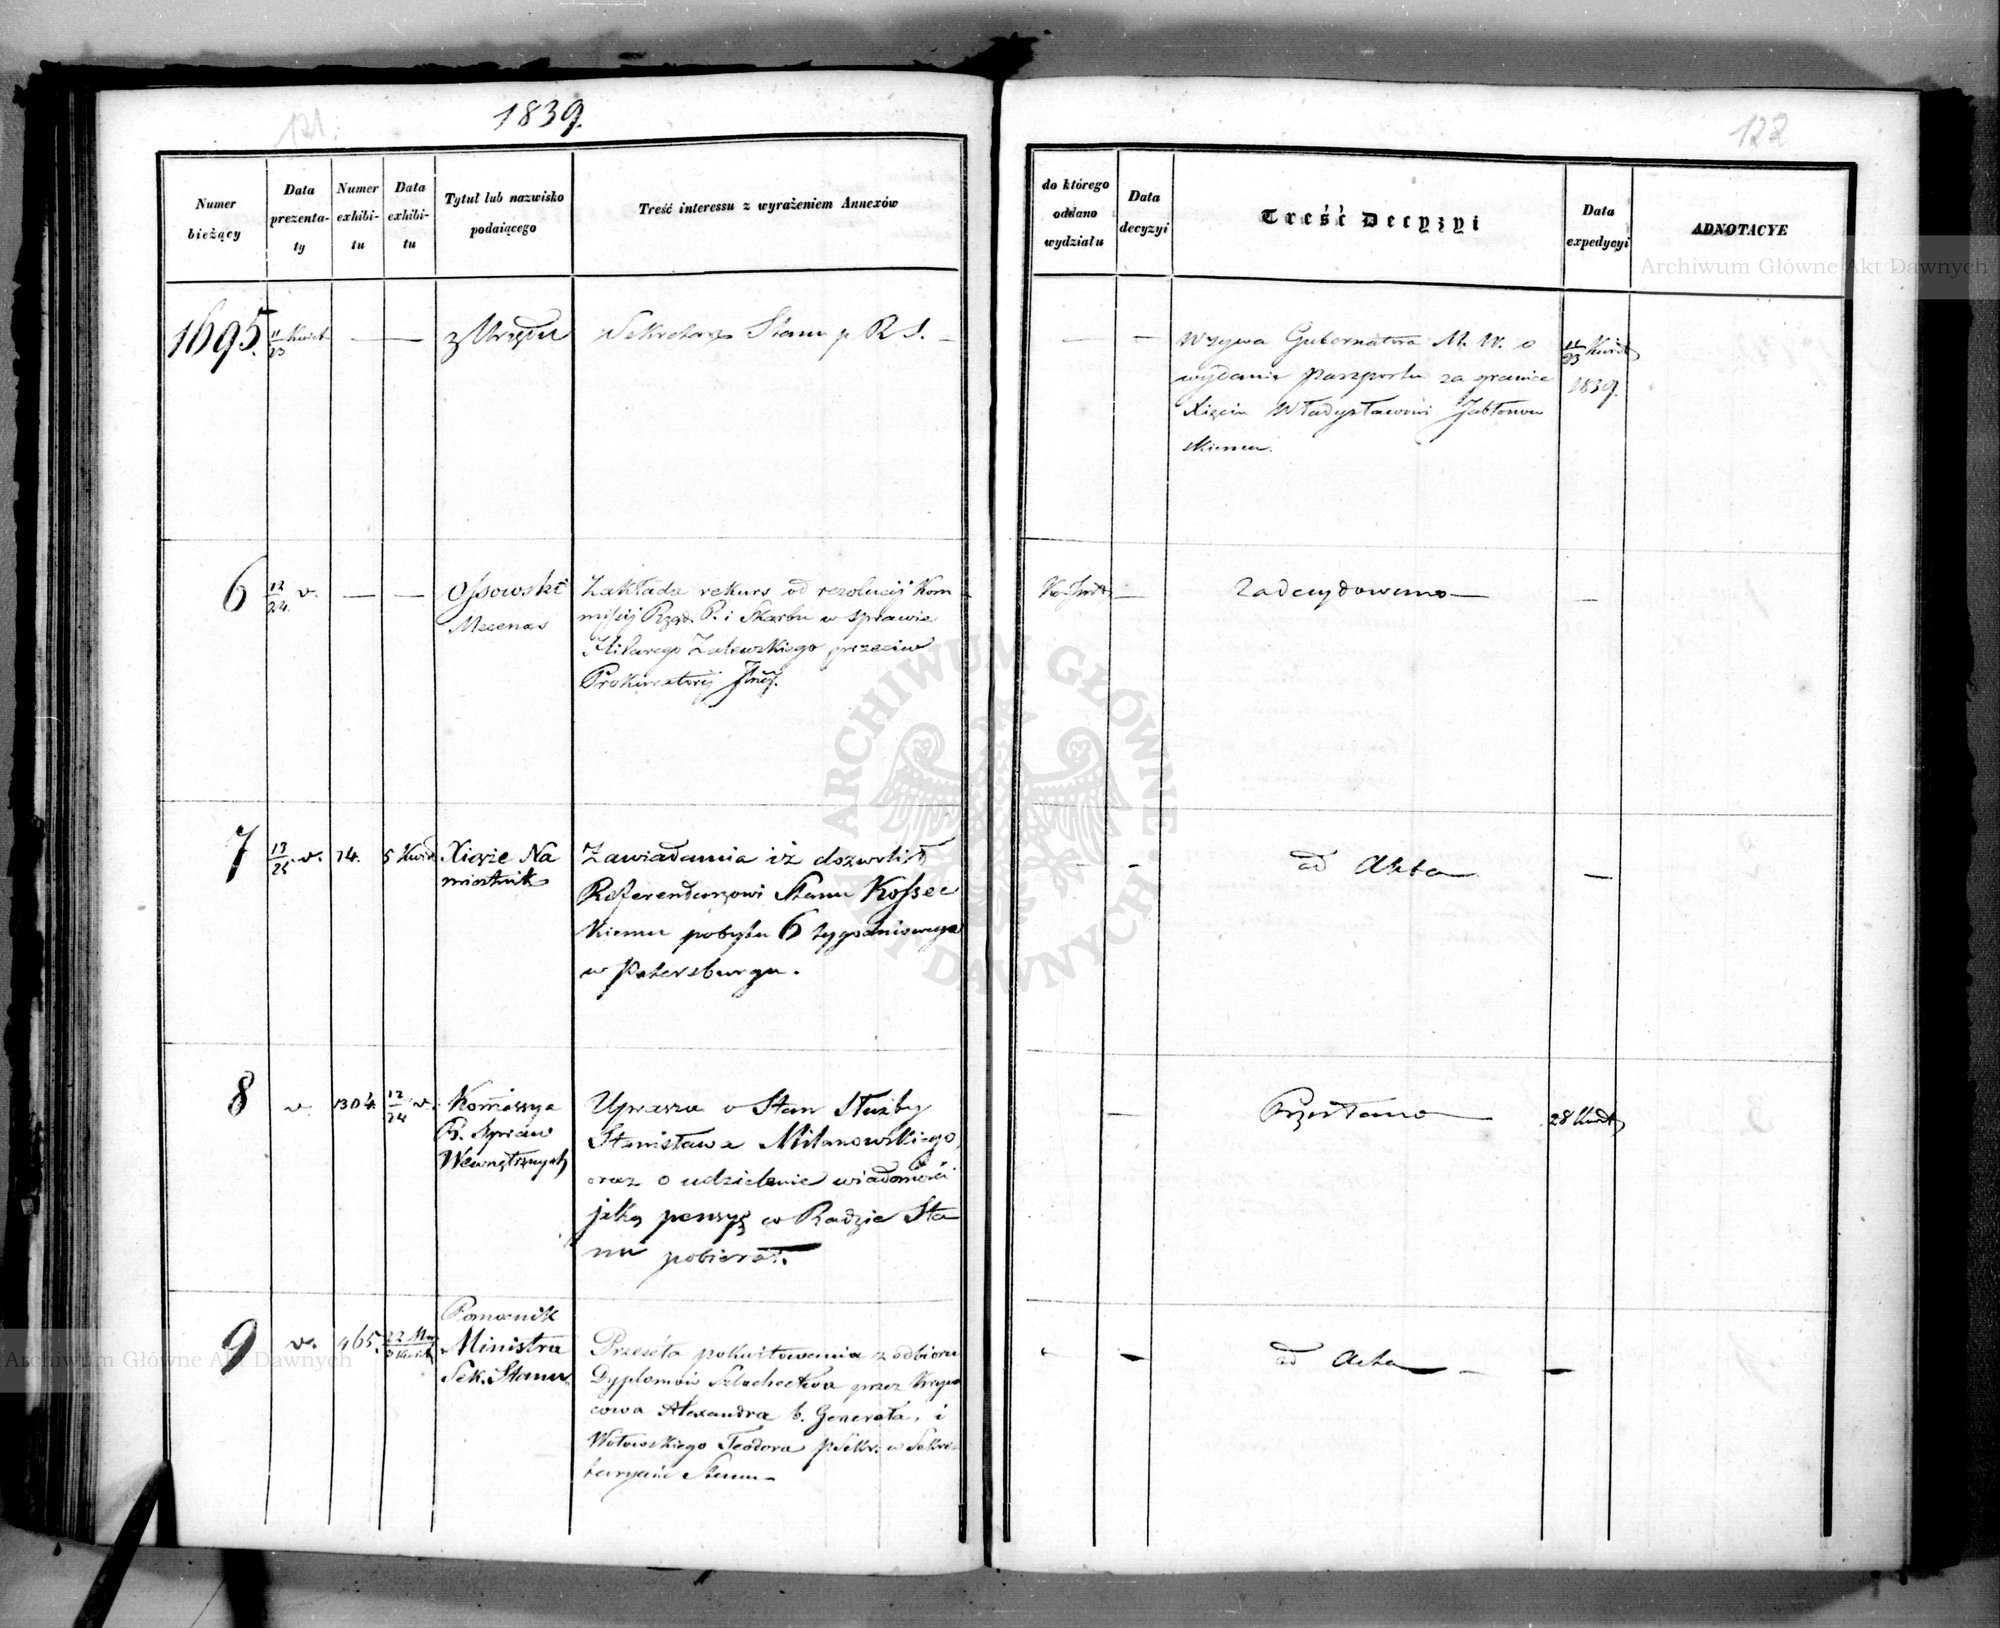 121.
1839.
Numer
bieżący
Data
prezenta-
ty
Numer
exhibi-
tu
Data
exhibi-
tu
Tytuł lub nazwisko
podaiącego
Treść interessu z wyrażeniem Annexów
1695.
11/23 Kwiet
—
—
z Urzędu
Sekretarz Stanu p R S. —
6
12/24. v.
—
—
Ossowski
Mecenas
Zakłada rekurs od rezolucij Kom
missij Rząd. P. i Skarbu w sprawie
Hilarego Zalewskiego przeciw
Prokuratorij
7
13/25 v.
74.
5 Kwie
Xiąże Na
miestnik
Zawiadamia iż dozwolił
Referendarzowi Stanu Kossec
kiemu pobytu 6 tygodniowego
w Petersburgu.
8
v.
1304.
12/24 v.
Kommissya
R. Spraw
Wewnętrznych
Uprasza o Stan Służby
Stanisława Milanowskiego,
oraz o udzielenie wiadomości
jaką pensyę w Radzie Sta
nu pobierał.
9
v.
465.
22 Mar/3 Kwiet
Pomocnik
Ministra
Sek. Stanu.
Przeséła pokwitowania z odbioru
Dyplomów Szlachectwa przez
Alexandra b. Generała, i
Wołowskiego Teodora p Sekr. w Sekre
taryacie Stanu —
122
do którego
oddano
wydziału
Data
decyzyi
Treść Decyzyi
Data
expedycyi
ADNOTACYE
—
—
Wzywa Gubernatora M. W. o
wydanie paszportu za granice
Xięciu Władysławowi Jabłonow
skiemu.
11/23 Kwiet
1839.
—
Zadecydowano —
—
—
ad Akta
—
—
Przesłano —
28 Kwiet
—
—
ad Acta —
—
Archiwum Główne Akt Dawnych
Archiwum Główne Akt Dawnych
ARCHIWUM GŁÓWNE
AKT DAWNYCH